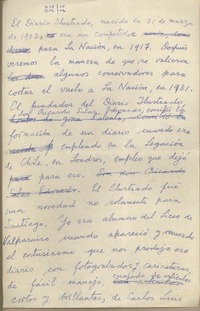 El Diario Ilustrado, nacido en 31 de marzo
de 1902, era un competidor
para La Nación, en 1917. Después
veremos la manera de que se valieron
algunos conservadores para
cortar el vuelo a La Nación, en 1931.
El fundador del Diario Ilustrado,
don Ricardo Salas Edwards,
formación de un diario cuando era
empleado en la Legación
de Chile, en Londres, empleo que dejó
para eso.
El Ilustrado fué
una novedad no solamente para
Santiago. Yo era alumno del Liceo de
Valparaíso cuando apareció y recuerdo
el entusiasmo que nos produjo ese
diario con fotograbados y caricaturas,
de fácil manejo, cuajado de artículos
cortos y brillantes, de Carlos Luis